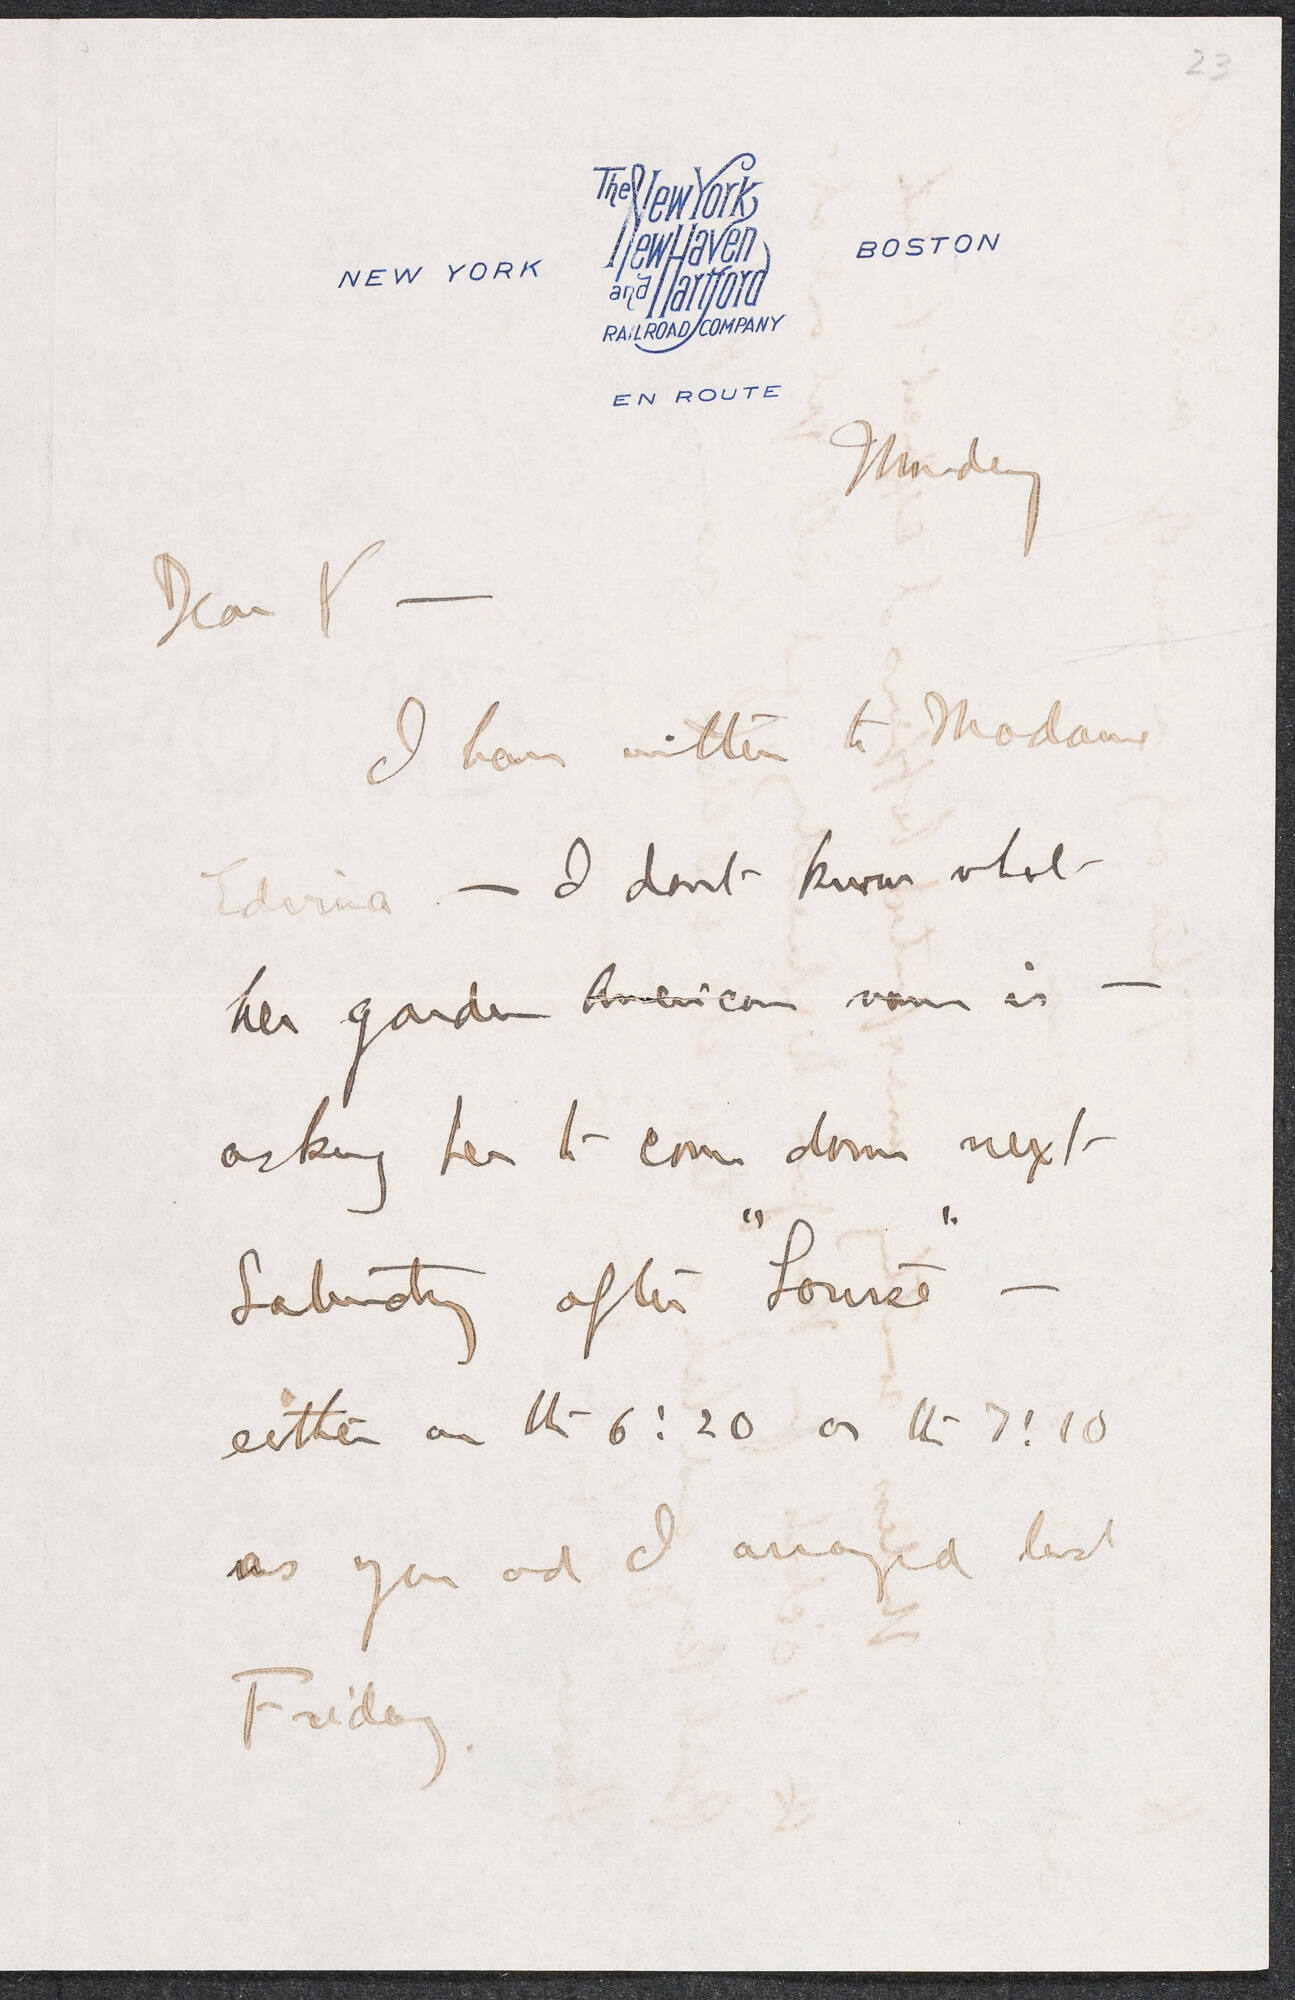 23
The New York,
New Haven
and Hartford
RAILROAD COMPANY
NEW YORK
BOSTON
EN ROUTE
Monday
Dear Y —
I have written to Madame
Edvina — I dont know what
her garden American name is —
asking her to come down next
Saturday after "Louise" —
either on the 6:20 or the 7:10
as you and I arranged last
Friday.